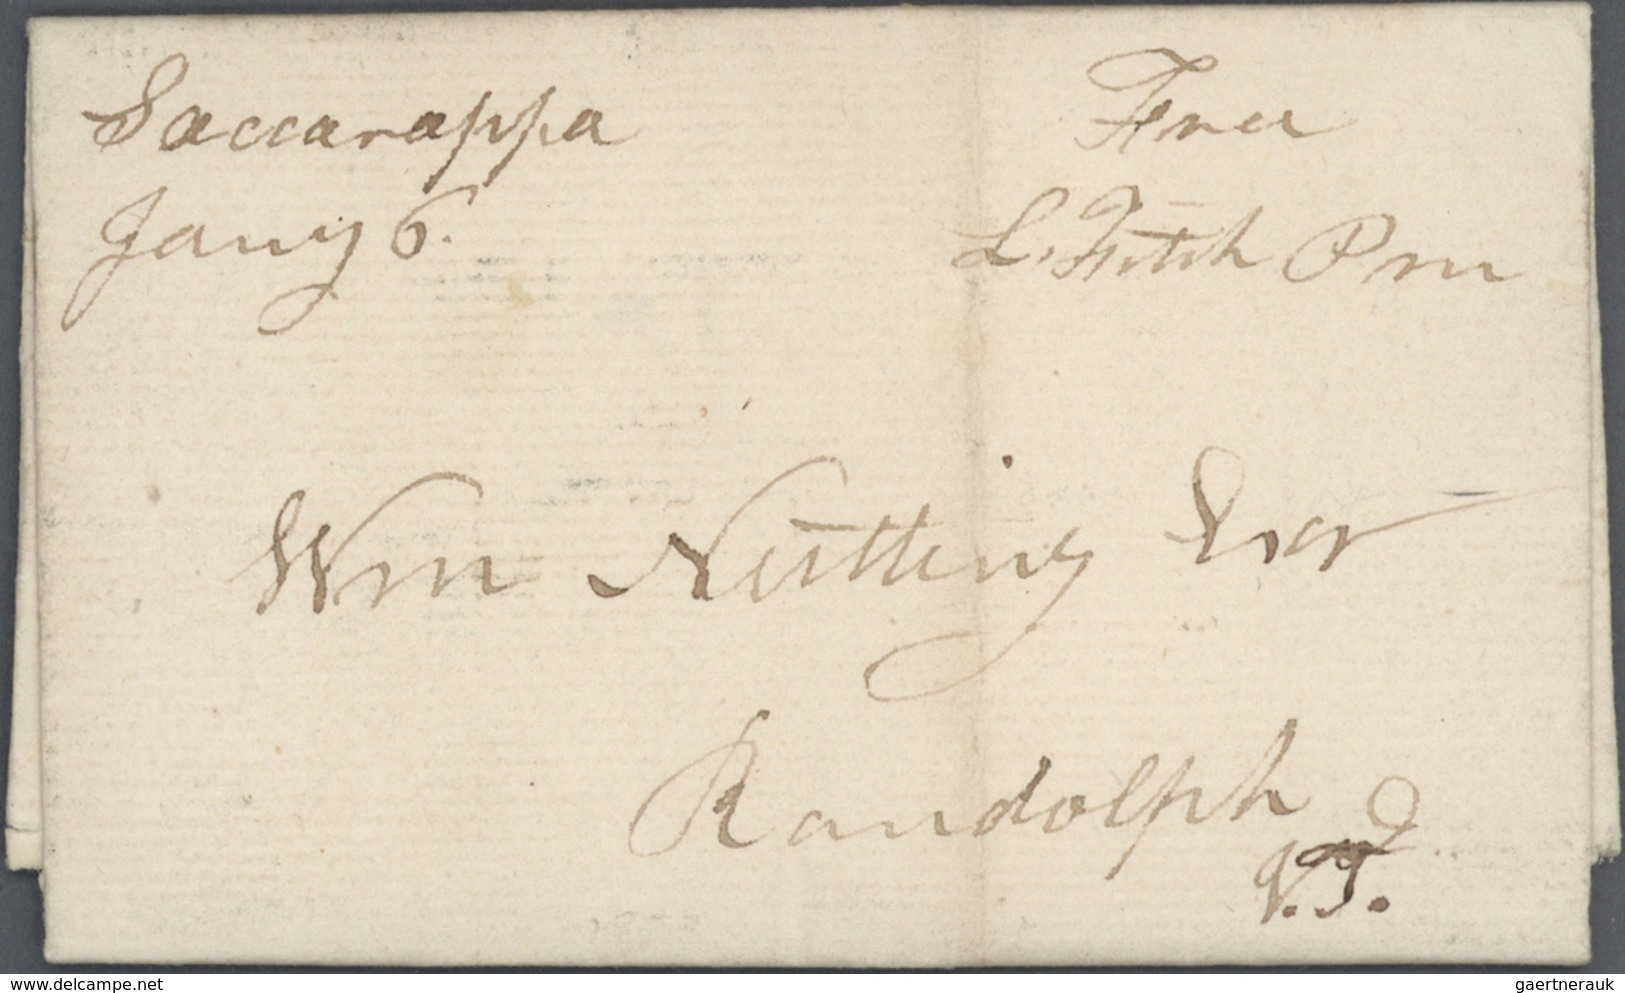 Saccarappa
Jany 6.
Free
L. Fitch Pm
Wm Nutting Esqr
Randolph
V.T.
www.delcampe.net
gaertnerauk